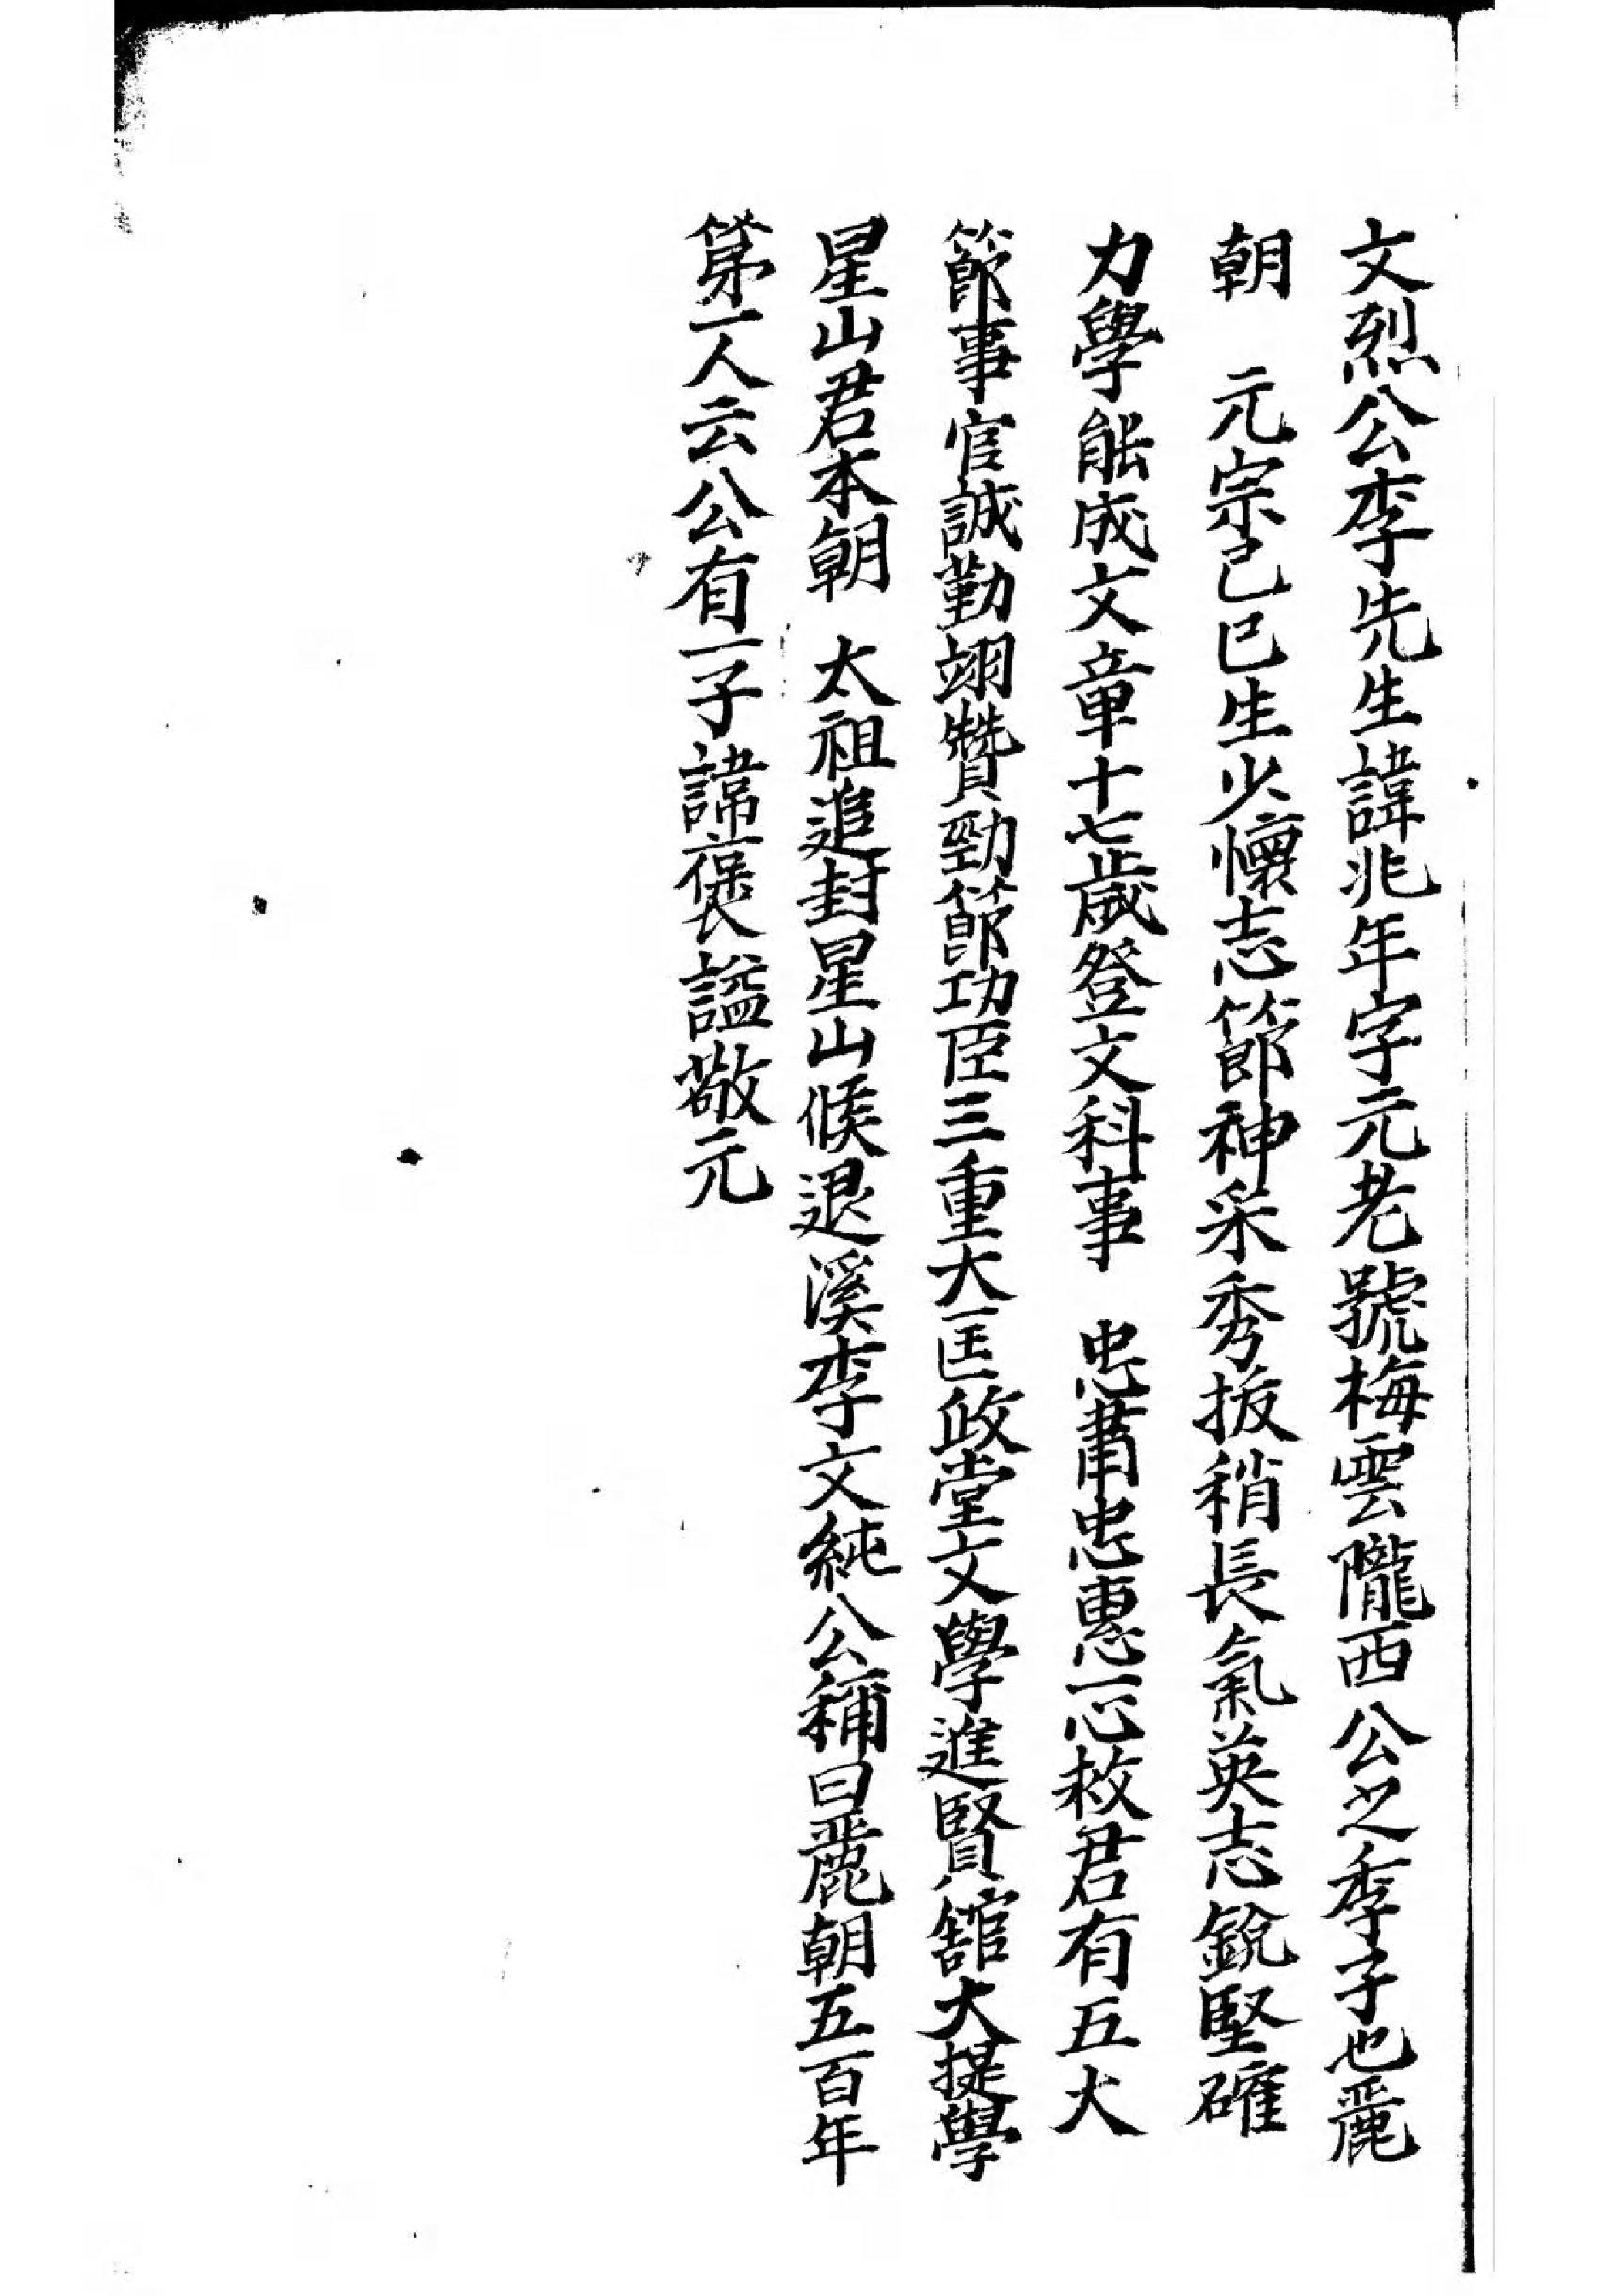 文烈公李先生諱兆年字元老號梅雲隴西公之季子也麗
朝　元宗己巳生少懷志節神采秀拔稍長氣英志銳堅確
力學能成文章十七歲登文科事　忠肅忠惠一心救君有五大
節事官誠勤翊贊勁節功臣三重大匡政堂文學進賢館大提學
星山君本朝　太祖追封星山候退溪李文純公稱曰麗朝五百年
第一人云公有一子諱褒謚敬元